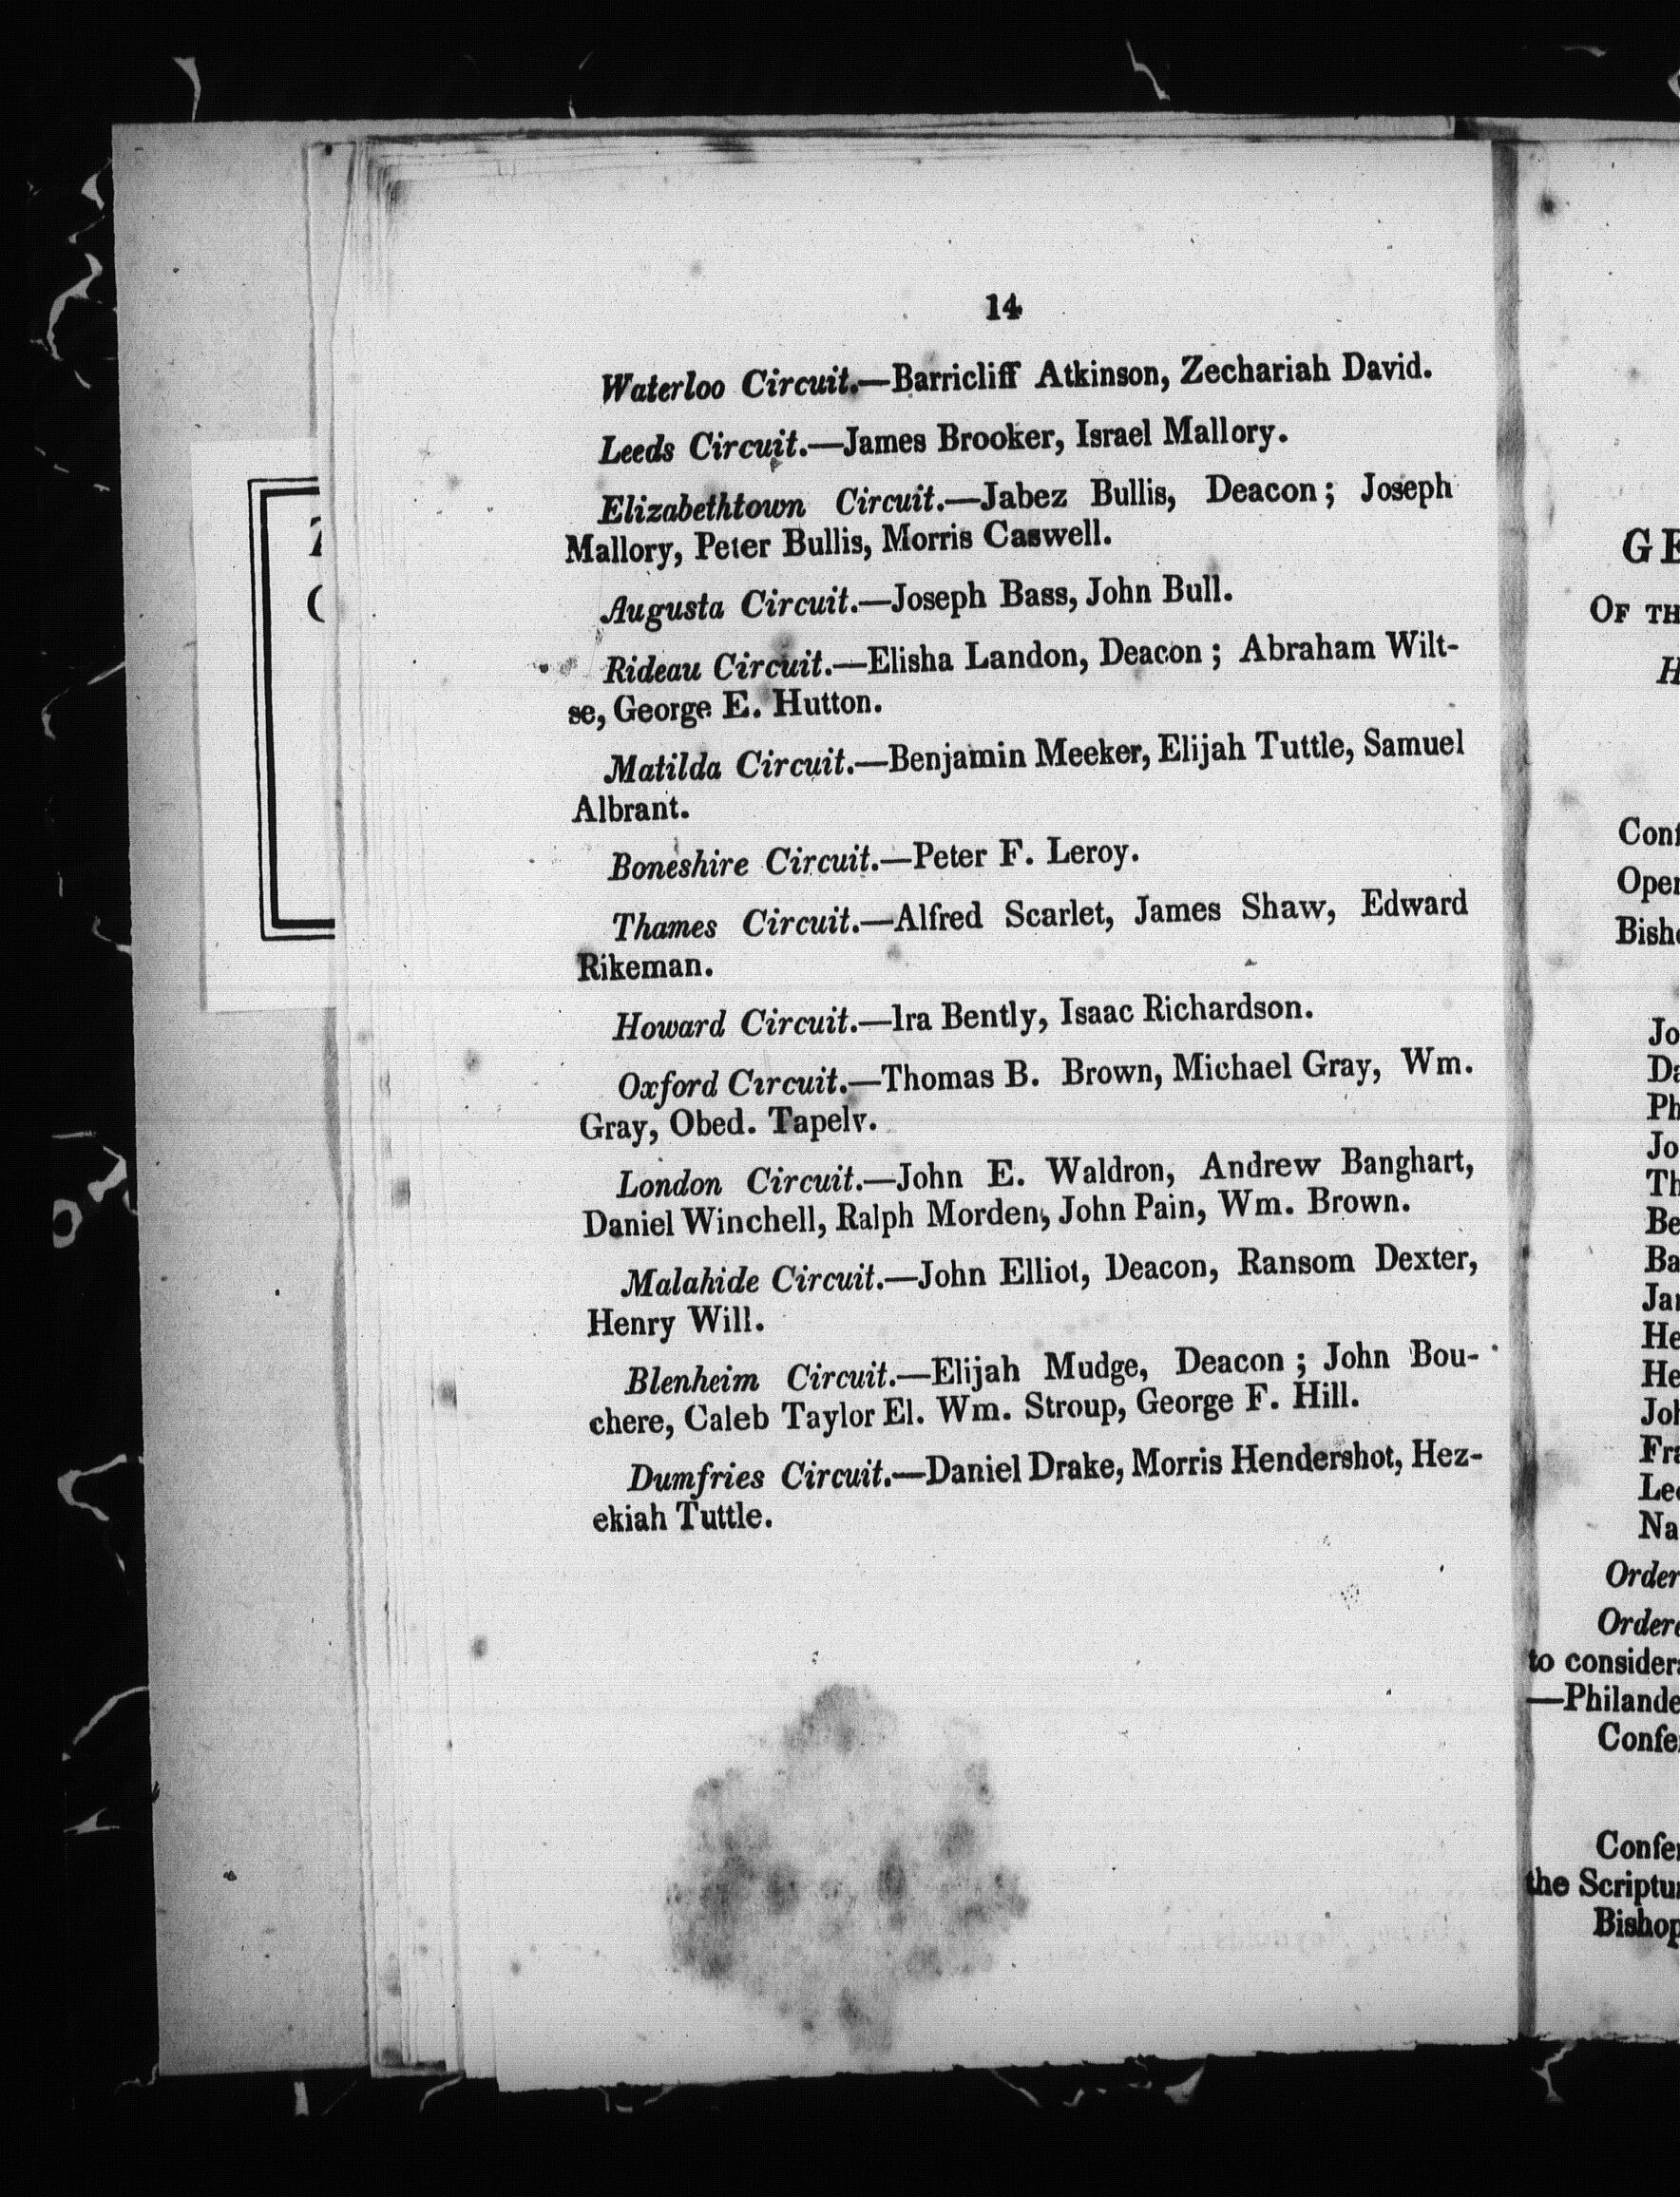 14
Waterloo Circuit.—Barricliff Atkinson, Zechariah David.
Leeds Circuit.—James Brooker, Israel Mallory.
Elizabethtown Circuit.—Jabez Bullis, Deacon; Joseph
Mallory, Peter Bullis, Morris Caswell.
Augusta Circuit.—Joseph Bass, John Bull.
Rideau Circuit.—Elisha Landon, Deacon; Abraham Wilt-
se, George E. Hutton.
Matilda Circuit.—Benjamin Meeker, Elijah Tuttle, Samuel
Albrant.
Boneshire Circuit.—Peter F. Leroy.
Thames Circuit.—Alfred Scarlet, James Shaw, Edward
Rikeman.
Howard Circuit.—Ira Bently, Isaac Richardson.
Oxford Circuit.—Thomas B. Brown, Michael Gray, Wm.
Gray, Obed. Tapely.
London Circuit.—John E. Waldron, Andrew Banghart,
Daniel Winchell, Ralph Morden, John Pain, Wm. Brown.
Malahide Circuit.—John Elliot, Deacon, Ransom Dexter,
Henry Will.
Blenheim Circuit.—Elijah Mudge, Deacon; John Bou-
chere, Caleb Taylor El. Wm. Stroup, George F. Hill.
Dumfries Circuit.—Daniel Drake, Morris Hendershot, Hez-
ekiah Tuttle.
GE
OF TH
H
Conf
Oper
Bisho
Jo
Da
Ph
Jo
Th
Be
Ba
Jar
He
He
Joh
Fra
Lee
Na
Order
Ordere
to consider
—Philande
Confe
Confer
the Scriptu
Bishop